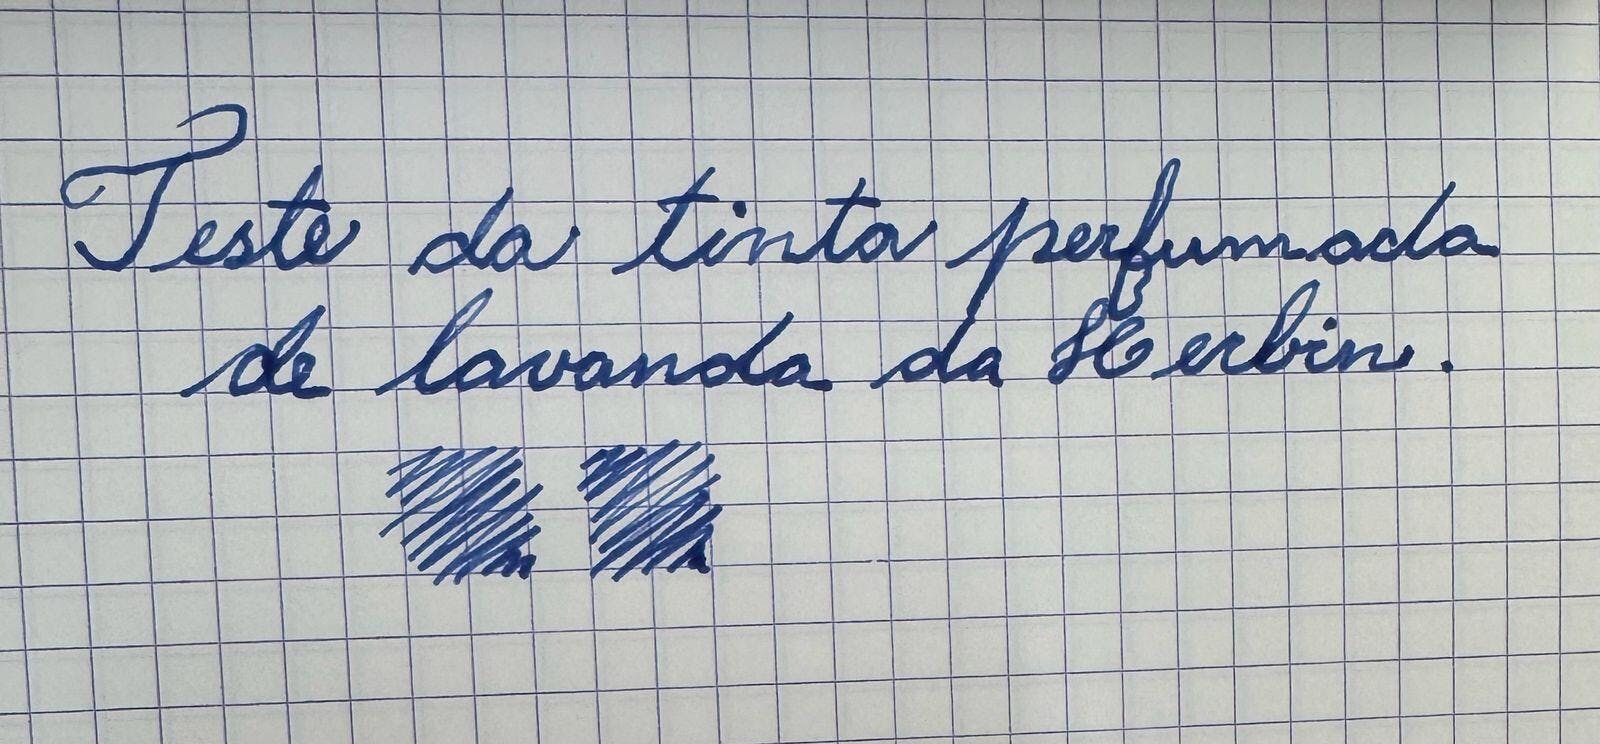 Teste da tinta perfumada
de lavanda da Herbin.